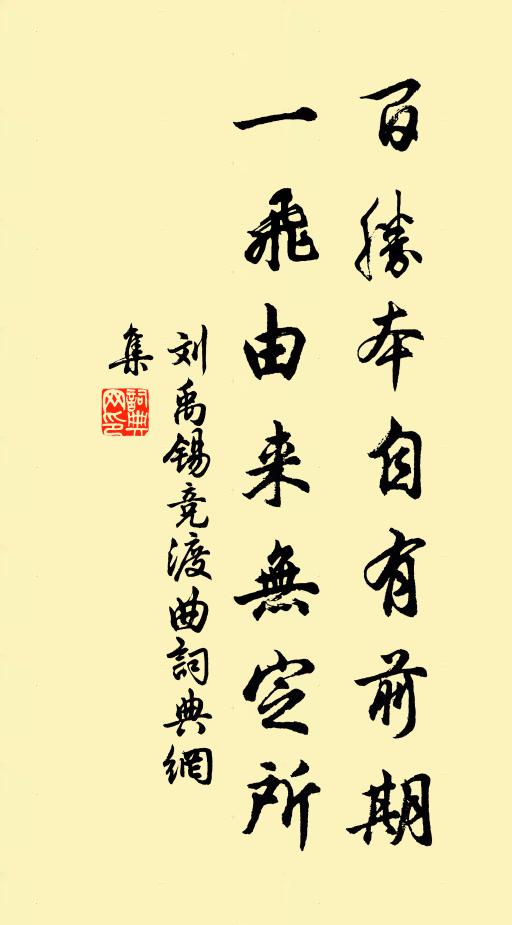 百勝本自有前期
一飛由来無定所
刘禹锡竞渡曲詞典網
集
詞典
网印